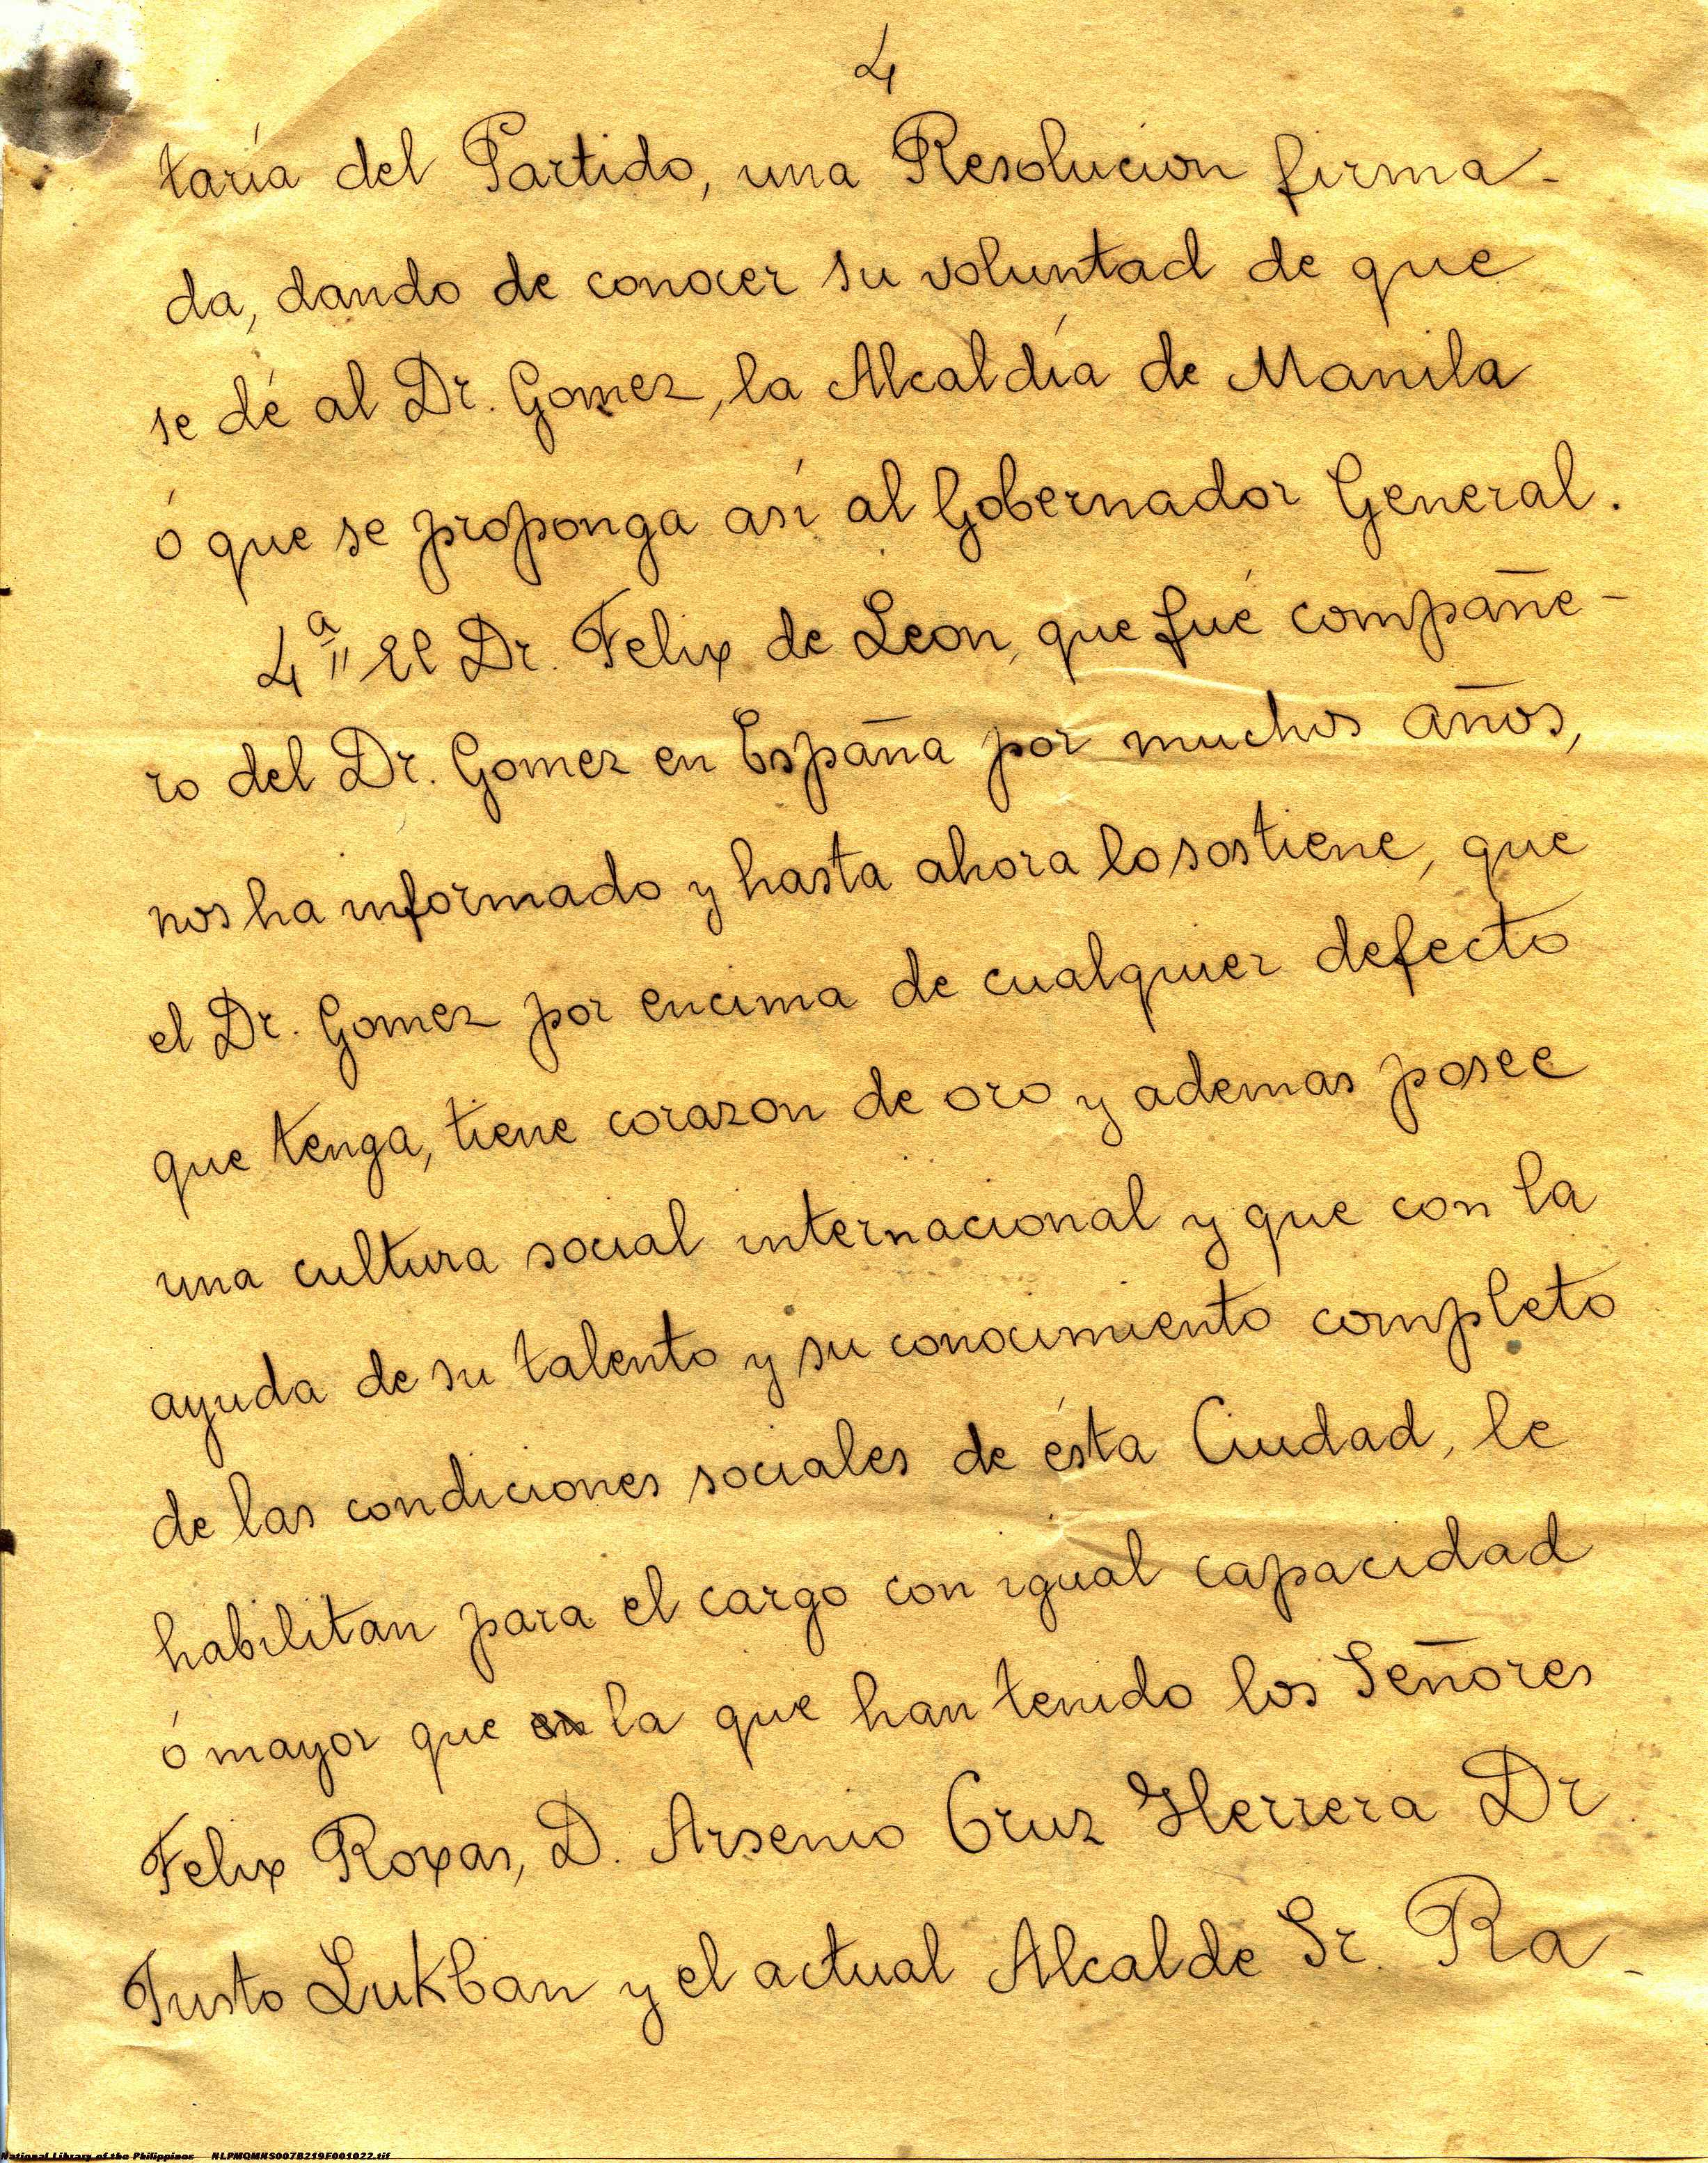 4
taría del Partido, una Resolucion firma-
da, dando de conocer su voluntad de que
se dé al Dr. Gomez, la Alcaldía de Manila
ó que se proponga así al Gobernador General.
4ª El Dr. Felix de Leon, que fué compañe-
ro del Dr. Gomez en España por muchos años,
nos ha informado y hasta ahora lo sostiene, que
el Dr. Gomez por encima de cualquier defecto
que tenga, tiene corazon de oro y ademas posee
una cultura social internacional y que con la
ayuda de su talento y su conocimiento completo
de las condiciones sociales de ésta Ciudad, le
habilitan para el cargo con igual capacidad
ó mayor que en la que han tenido los Señores
Felix Roxas, D. Arsenio Cruz Herrera Dr.
Justo Lukban y el actual Alcalde Sr. Ra-
National Library of the Philippines NLPMQMNS007B219F001022.tif